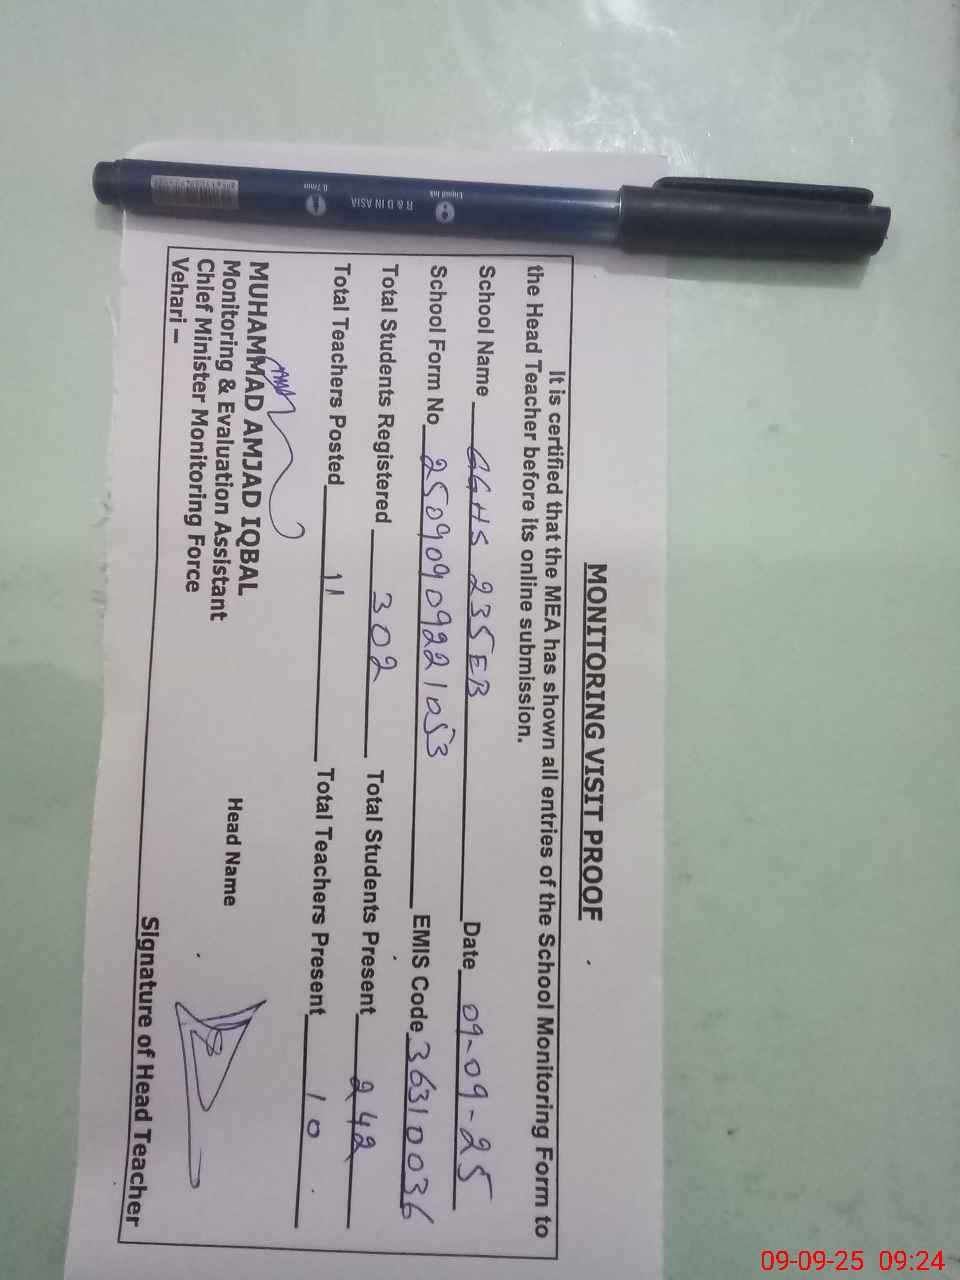 MONITORING VISIT PROOF
It is certified that the MEA has shown all entries of the School Monitoring Form to
the Head Teacher before its online submission.
School Name GGHS 235EB Date 09-09-25
School Form No 25090909221053 EMIS Code 36310036
Total Students Registered 302 Total Students Present 242
Total Teachers Posted 11 Total Teachers Present 10
MUHAMMAD AMJAD IQBAL
Monitoring & Evaluation Assistant Head Name
Chief Minister Monitoring Force
Vehari –
Signature of Head Teacher
Liquid Ink
R & D IN ASIA
0.7mm
09-09-25 09:24